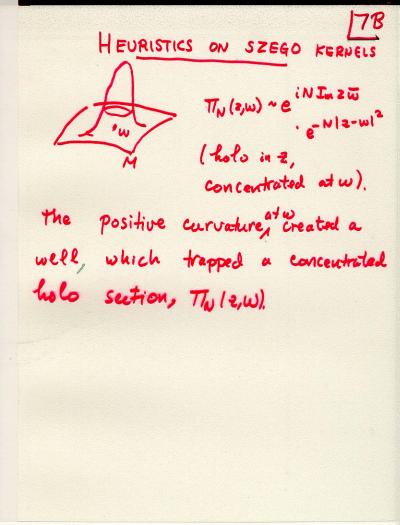 7B
HEURISTICS ON SZEGO KERNELS
Π_N(z,w) ~ e^{iN Im z w̄}
· e^{-N|z-w|²}
(holo in z,
concentrated at w).
•w
M
The positive curvature, at w created a
well, which trapped a concentrated
holo section, Π_N(z,w).